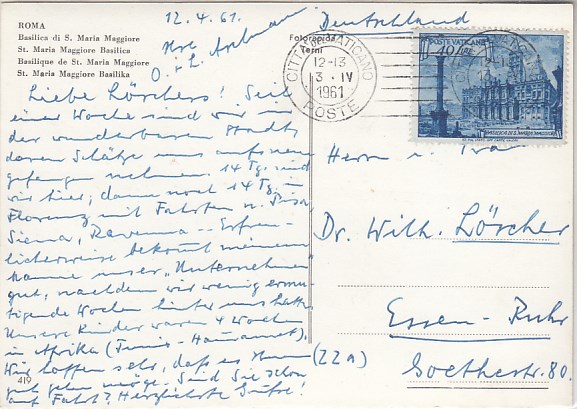 ROMA
Basilica di S. Maria Maggiore
St. Maria Maggiore Basilica
Basilique de St. Marie Maggiore
St. Maria Maggiore Basilika
12.4.61.
Deutschland
Fotorapida
Terni
CITTÀ DEL VATICANO
12-13
13 · IV
1961
POSTE
POSTE VATICANE
40 LIRE
BASILICA DI S. MARIA MAGGIORE
Liebe Lörchers! Seit
einer Woche sind wir in
der wunderbaren Stadt,
deren Schätze uns aufs neue
gefangen nehmen. 14 Tg. sind
wir hier; dann noch 14 Tg. in
Florenz mit Fahrten n. Pisa,
Siena, Ravenna -- Erfreu-
licherweise bekommt meinem
Manne unser "Unternehmen"
gut, nachdem wir wenig ermu-
tigende Wochen hinter uns hatten.
Unsere Kinder waren 4 Wochen
in Afrika (Tunis - Hammamet).
Wir hoffen sehr, daß es Ihnen
gut gehen möge. Sind Sie schon
auf Fahrt? Herzlichste Grüße!
Herrn u. Frau
Dr. Wilh. Lörcher
Essen-Ruhr
(22a)
Goethestr. 80.
419